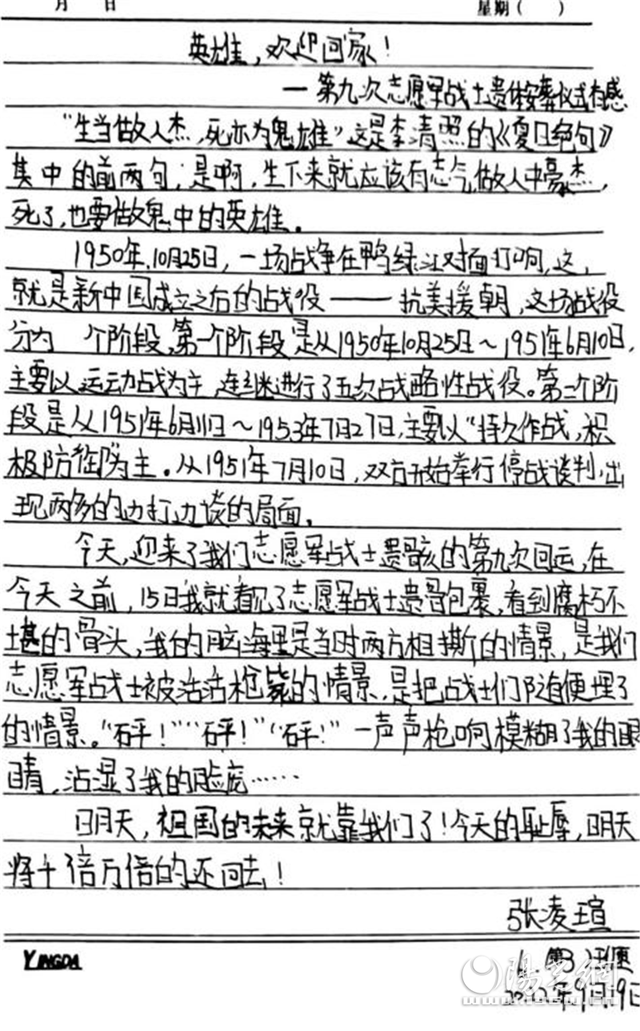 月 日 星期( )
英雄,欢迎回家!
—第九次志愿军战士遗体安葬仪式有感
“生当做人杰,死亦为鬼雄”这是李清照的《夏日绝句》
其中的前两句,是啊,生下来就应该有志气,做人中豪杰,
死了,也要做鬼中的英雄。
1950年10月25日,一场战争在鸭绿江对面打响,这,
就是新中国成立之后的战役——抗美援朝,这场战役
分为 个阶段,第一个阶段是从1950年10月25日~1951年6月10日,
主要以运动战为主,连继进行了五次战略性战役。第二个阶
段是从1951年6月11日~1953年7月27日,主要以“持久作战,积
极防御”为主。从1951年7月10日,双方开始举行停战谈判,出
现两多的边打边谈的局面。
今天,迎来了我们志愿军战士遗骸的第九次回运,在
今天之前,15日我就看见了志愿军战士遗骨包裹,看到腐朽不
堪的骨头,我的脑海里是当时两方相撕的情景,是我们
志愿军战士被活活枪毙的情景,是把战士们随便埋了
的情景。“砰!”“砰!”“砰!”一声声枪响模糊了我的眼
睛,沾湿了我的脸庞……
明天,祖国的未来就靠我们了!今天的耻辱,明天
将十倍万倍的还回去!
张凌瑄
YINGDA
2022年9月19日